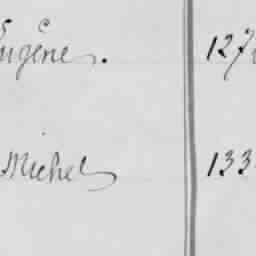 Eugène. 127
Michel 133